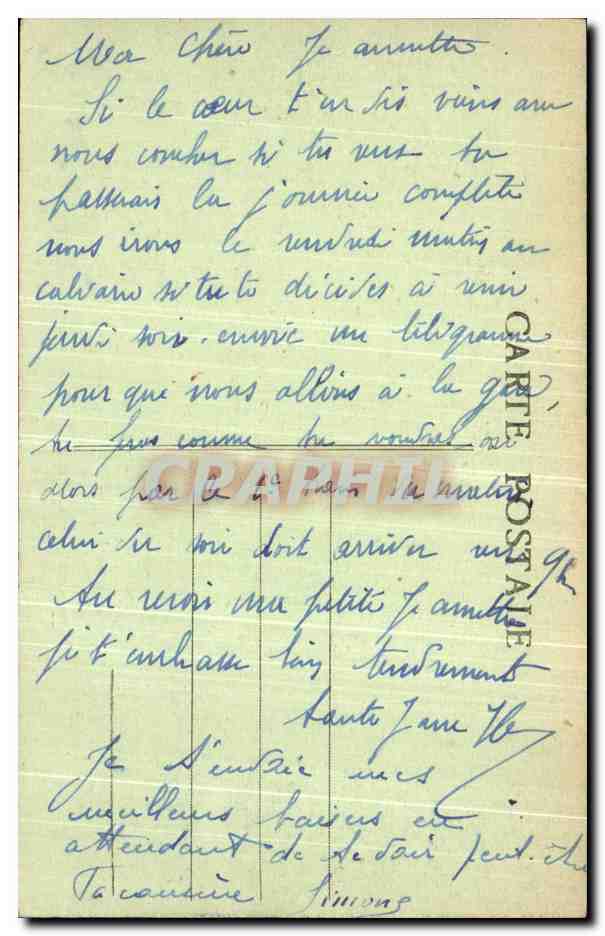 Ma Chère Jeannette.
Si le cœur t'en dis viens avec
nous coucher si tu veux tu
passerais la journée complète
nous irons le vendredi matin au
calvaire si tu te décides à venir
jeudi soir. envoie un télégramme
pour que nous allions à la gare,
tu feras comme tu voudras ou
alors par le 1e du matin
celui du soir doit arriver vers 9h
Au revoir ma petite Jeannette
je t'embrasse bien tendrement
tante Jane
Je t'envoie mes
meilleurs baisers en
attendant de te voir peut-être
Ta cousine Simone
CARTE POSTALE
CPAPHIL